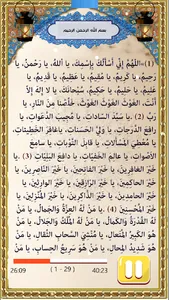 بسم الله الرحمن الرحیم
(1)–اَللّهُمَّ اِنّی اَسْأَلُكَ بِاسْمِكَ، یا اَللهُ، یا رَحْمنُ، یا
رَحیمُ، یا كَریمُ، یا مُقیمُ، یا عَظیمُ، یا قَدیمُ، یا
عَلیمُ، یا حَلیمُ، یا حَكیمُ، سُبْحانَكَ یا لا اِلهَ اِلّا
اَنْتَ، الْغَوْثَ الْغَوْثَ، خَلِّصْنا مِنَ النّارِ، یا
رَبِّ (2) یا سَیِّدَ السّاداتِ، یا مُجیبَ الدَّعَواتِ، یا
رافِعَ الدَّرَجاتِ، یا وَلِیَّ الْحَسَناتِ، یا غافِرَ الْخَطیئاتِ،
یا مُعْطِیَ الْمَسْأَلاتِ، یا قابِلَ التَّوْباتِ، یا سامِعَ
الْاَصْواتِ، یا عالِمَ الْخَفِیّاتِ، یا دافِعَ الْبَلِیّاتِ (3) یا
خَیْرَ الْغافِرینَ، یا خَیْرَ الْفاتِحینَ، یا خَیْرَ النّاصِرینَ، یا
خَیْرَ الْحاكِمینَ، یا خَیْرَ الرّازِقینَ، یا خَیْرَ الْوارِثینَ، یا
خَیْرَ الْحامِدینَ، یا خَیْرَ الذّاكِرینَ، یا خَیْرَ الْمُنْزِلینَ، یا
خَیْرَ الْمُحْسِنینَ (4) یا مَنْ لَهُ الْعِزَّةُ وَالْجَمالُ، یا مَنْ لَهُ
الْقُدْرَةُ وَالْكَمالُ، یا مَنْ لَهُ الْمُلْكُ وَالْجَلالُ، یا مَنْ
هُوَ الْكَبیرُ الْمُتَعالِ، یا مُنْشِئَ السَّحابِ الثِّقالِ، یا مَنْ هُوَ
شَدیدُ الْمِحالِ، یا مَنْ هُوَ سَریعُ الْحِسابِ، یا مَنْ
26:09 ( 1 - 29 ) 40:23